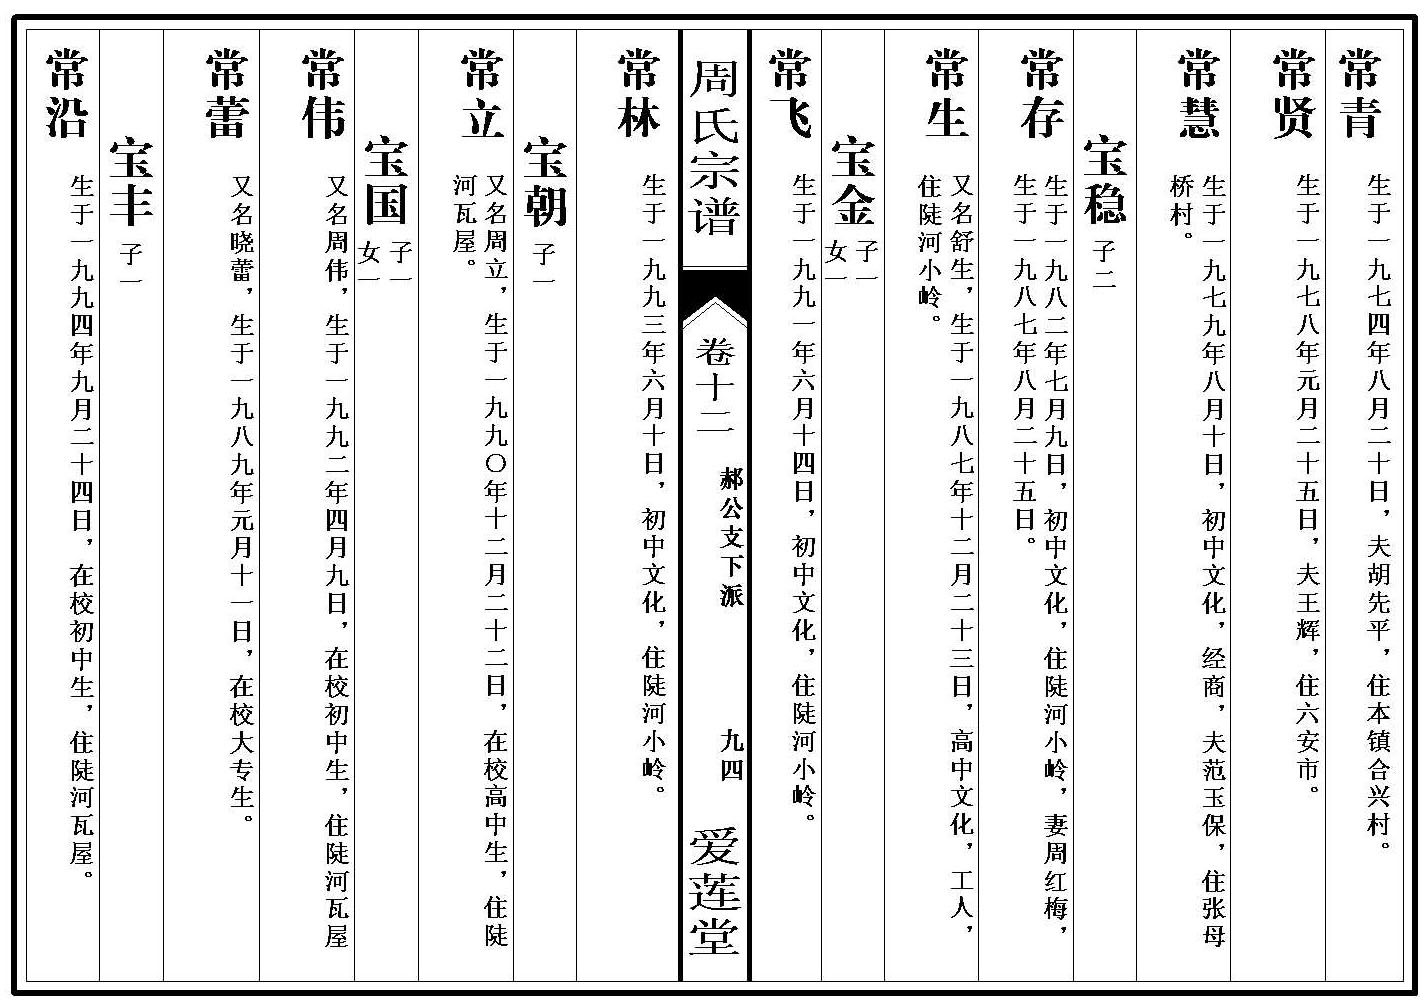 常青
生于一九七四年八月二十日，夫胡先平，住本镇合兴村。
常贤
生于一九七八年元月二十五日，夫王辉，住六安市。
常慧
生于一九七九年八月十日，初中文化，经商，夫范玉保，住张母
桥村。
宝稳
子二
常存
生于一九八二年七月九日，初中文化，住陡河小岭，妻周红梅，
生于一九八七年八月二十五日。
常生
又名舒生，生于一九八七年十二月二十三日，高中文化，工人，
住陡河小岭。
宝金
子一
女一
常飞
生于一九九一年六月十四日，初中文化，住陡河小岭。
周氏宗谱
卷十二
郝公支下派
九四
爱莲堂
常林
生于一九九三年六月十日，初中文化，住陡河小岭。
宝朝
子一
常立
又名周立，生于一九九〇年十二月二十二日，在校高中生，住陡
河瓦屋。
宝国
子一
女一
常伟
又名周伟，生于一九九二年四月九日，在校初中生，住陡河瓦屋
常蕾
又名晓蕾，生于一九八九年元月十一日，在校大专生。
宝丰
子一
常沿
生于一九九四年九月二十四日，在校初中生，住陡河瓦屋。